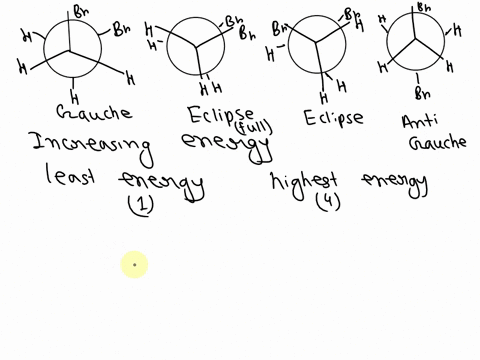 Br
H
Br
H
H
H
Gauche
H
H
Br
Br
H H
Eclipse
(full)
Br
H
H
H
H
Eclipse
Br
H
H
H
H
Br
Anti
Gauche
Increasing energy
least energy
(1)
highest energy
(4)